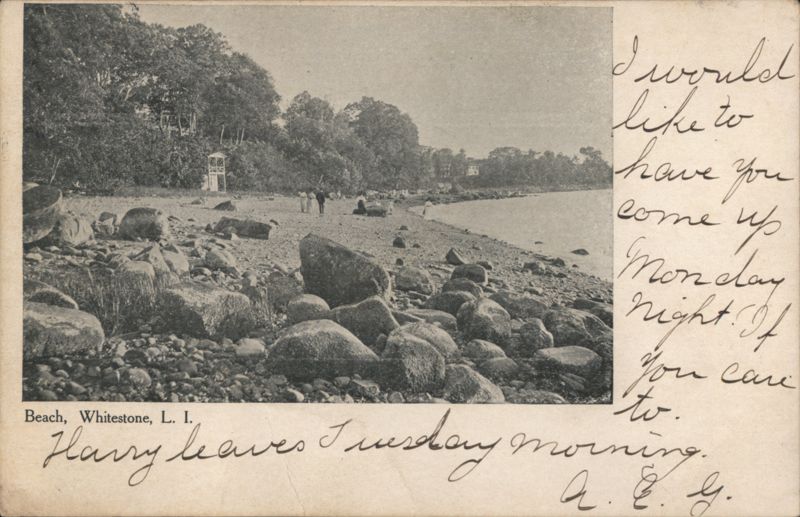 I would
like to
have you
come up
Monday
Night. If
you care
to.
Beach, Whitestone, L. I.
Harry leaves Tuesday morning.
A. E. G.